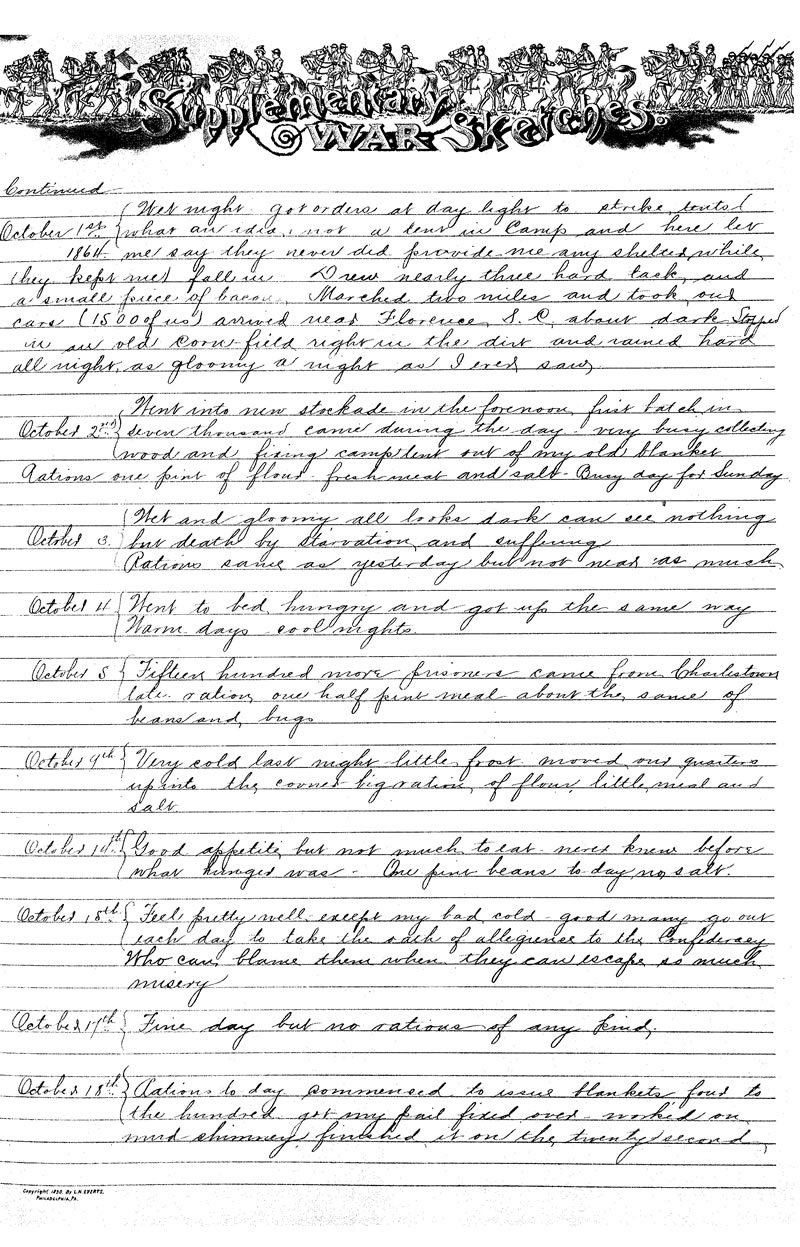 Supplementary
WAR Sketches.
Continued
Wet night got orders at day light to strike tents (
October 1st what an idea, not a tent in Camp and here let
1864 me say they never did provide me any shelter while
they kept me) fall in. Drew nearly three hard tack and
a small piece of bacon. Marched two miles and took our
cars (1500 of us) arrived near Florence, S.C. about dark Stopped
in an old corn-field right in the dirt and rained hard
all night, as gloomy a night as I ever saw
Went into new stockade in the forenoon, first batch in
October 2nd seven thousand came during the day - very busy collecting
wood and fixing camp tent out of my old blanket
Rations one pint of flour - fresh meat and salt - Busy day for Sunday
Wet and gloomy all looks dark can see nothing
October 3. but death by starvation and suffering
Rations same as yesterday but not near as much
October 4 Went to bed hungry and got up the same way
Warm days cool nights
October 5 Fifteen hundred more prisoners came from Charlestown
late. ration one half pint meal about the same of
beans and bugs
October 9th Very cold last night little frost moved our quarters
up into the corner big ration of flour, little meal and
salt
October 14th Good appetite but not much to eat never knew before
what hunger was - One pint beans to day no salt.
October 15th Feel pretty well except my bad cold - good many go out
each day to take the oath of allegience to the Confederacy
Who can blame them when they can escape so much
misery
October 17th Fine day but no rations of any kind,
October 18th Rations to day commensed to issue blankets four to
the hundred got my pail fixed over - worked on
mud chimney finished it on the twenty second,
Copyright 1890. By L.H. EVERTS.
PHILADELPHIA, PA.